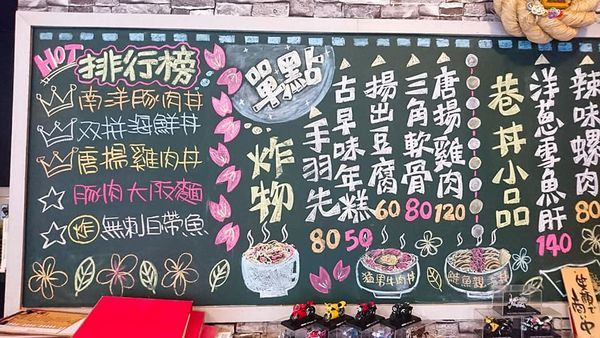 HOT
排行榜
南洋豚肉丼
双拼海鮮丼
唐揚雞肉丼
豚肉大阪麵
炸 無刺白帶魚
單點
炸物
手羽先 80
古早味年糕 50
揚出豆腐 60
三角軟骨 80
唐揚雞肉 120
巷丼小品
洋蔥雪魚肝 140
辣味螺肉 80
猛男牛肉丼
鮭魚親子丼